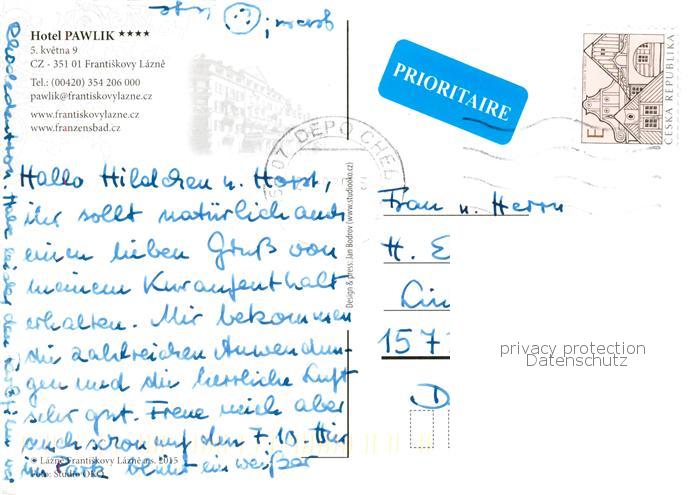 Hotel PAWLIK ★★★★
5. května 9
CZ - 351 01 Františkovy Lázně
Tel.: (00420) 354 206 000
pawlik@frantiskovylazne.cz
www.frantiskovylazne.cz
www.franzensbad.cz
Hallo Hildchen u. Horst,
ihr sollt natürlich auch
einen lieben Gruß von
meinem Kuraufenthalt
erhalten. Mir bekommen
die zahlreichen Anwendun-
gen und die herrliche Luft
sehr gut. Freue mich aber
auch schon auf den 7.10. Hier
im Park blüht ein weißer
Rhododendron. Habe
© Lázně Františkovy Lázně a.s. 2015
Foto: Studio OKO
Design & press: Jan Bodrov (www.studiooko.cz)
PRIORITAIRE
DEPO CHEB
E
ČESKÁ REPUBLIKA
Frau u. Herrn
H. E
Lin
157
D
privacy protection
Datenschutz